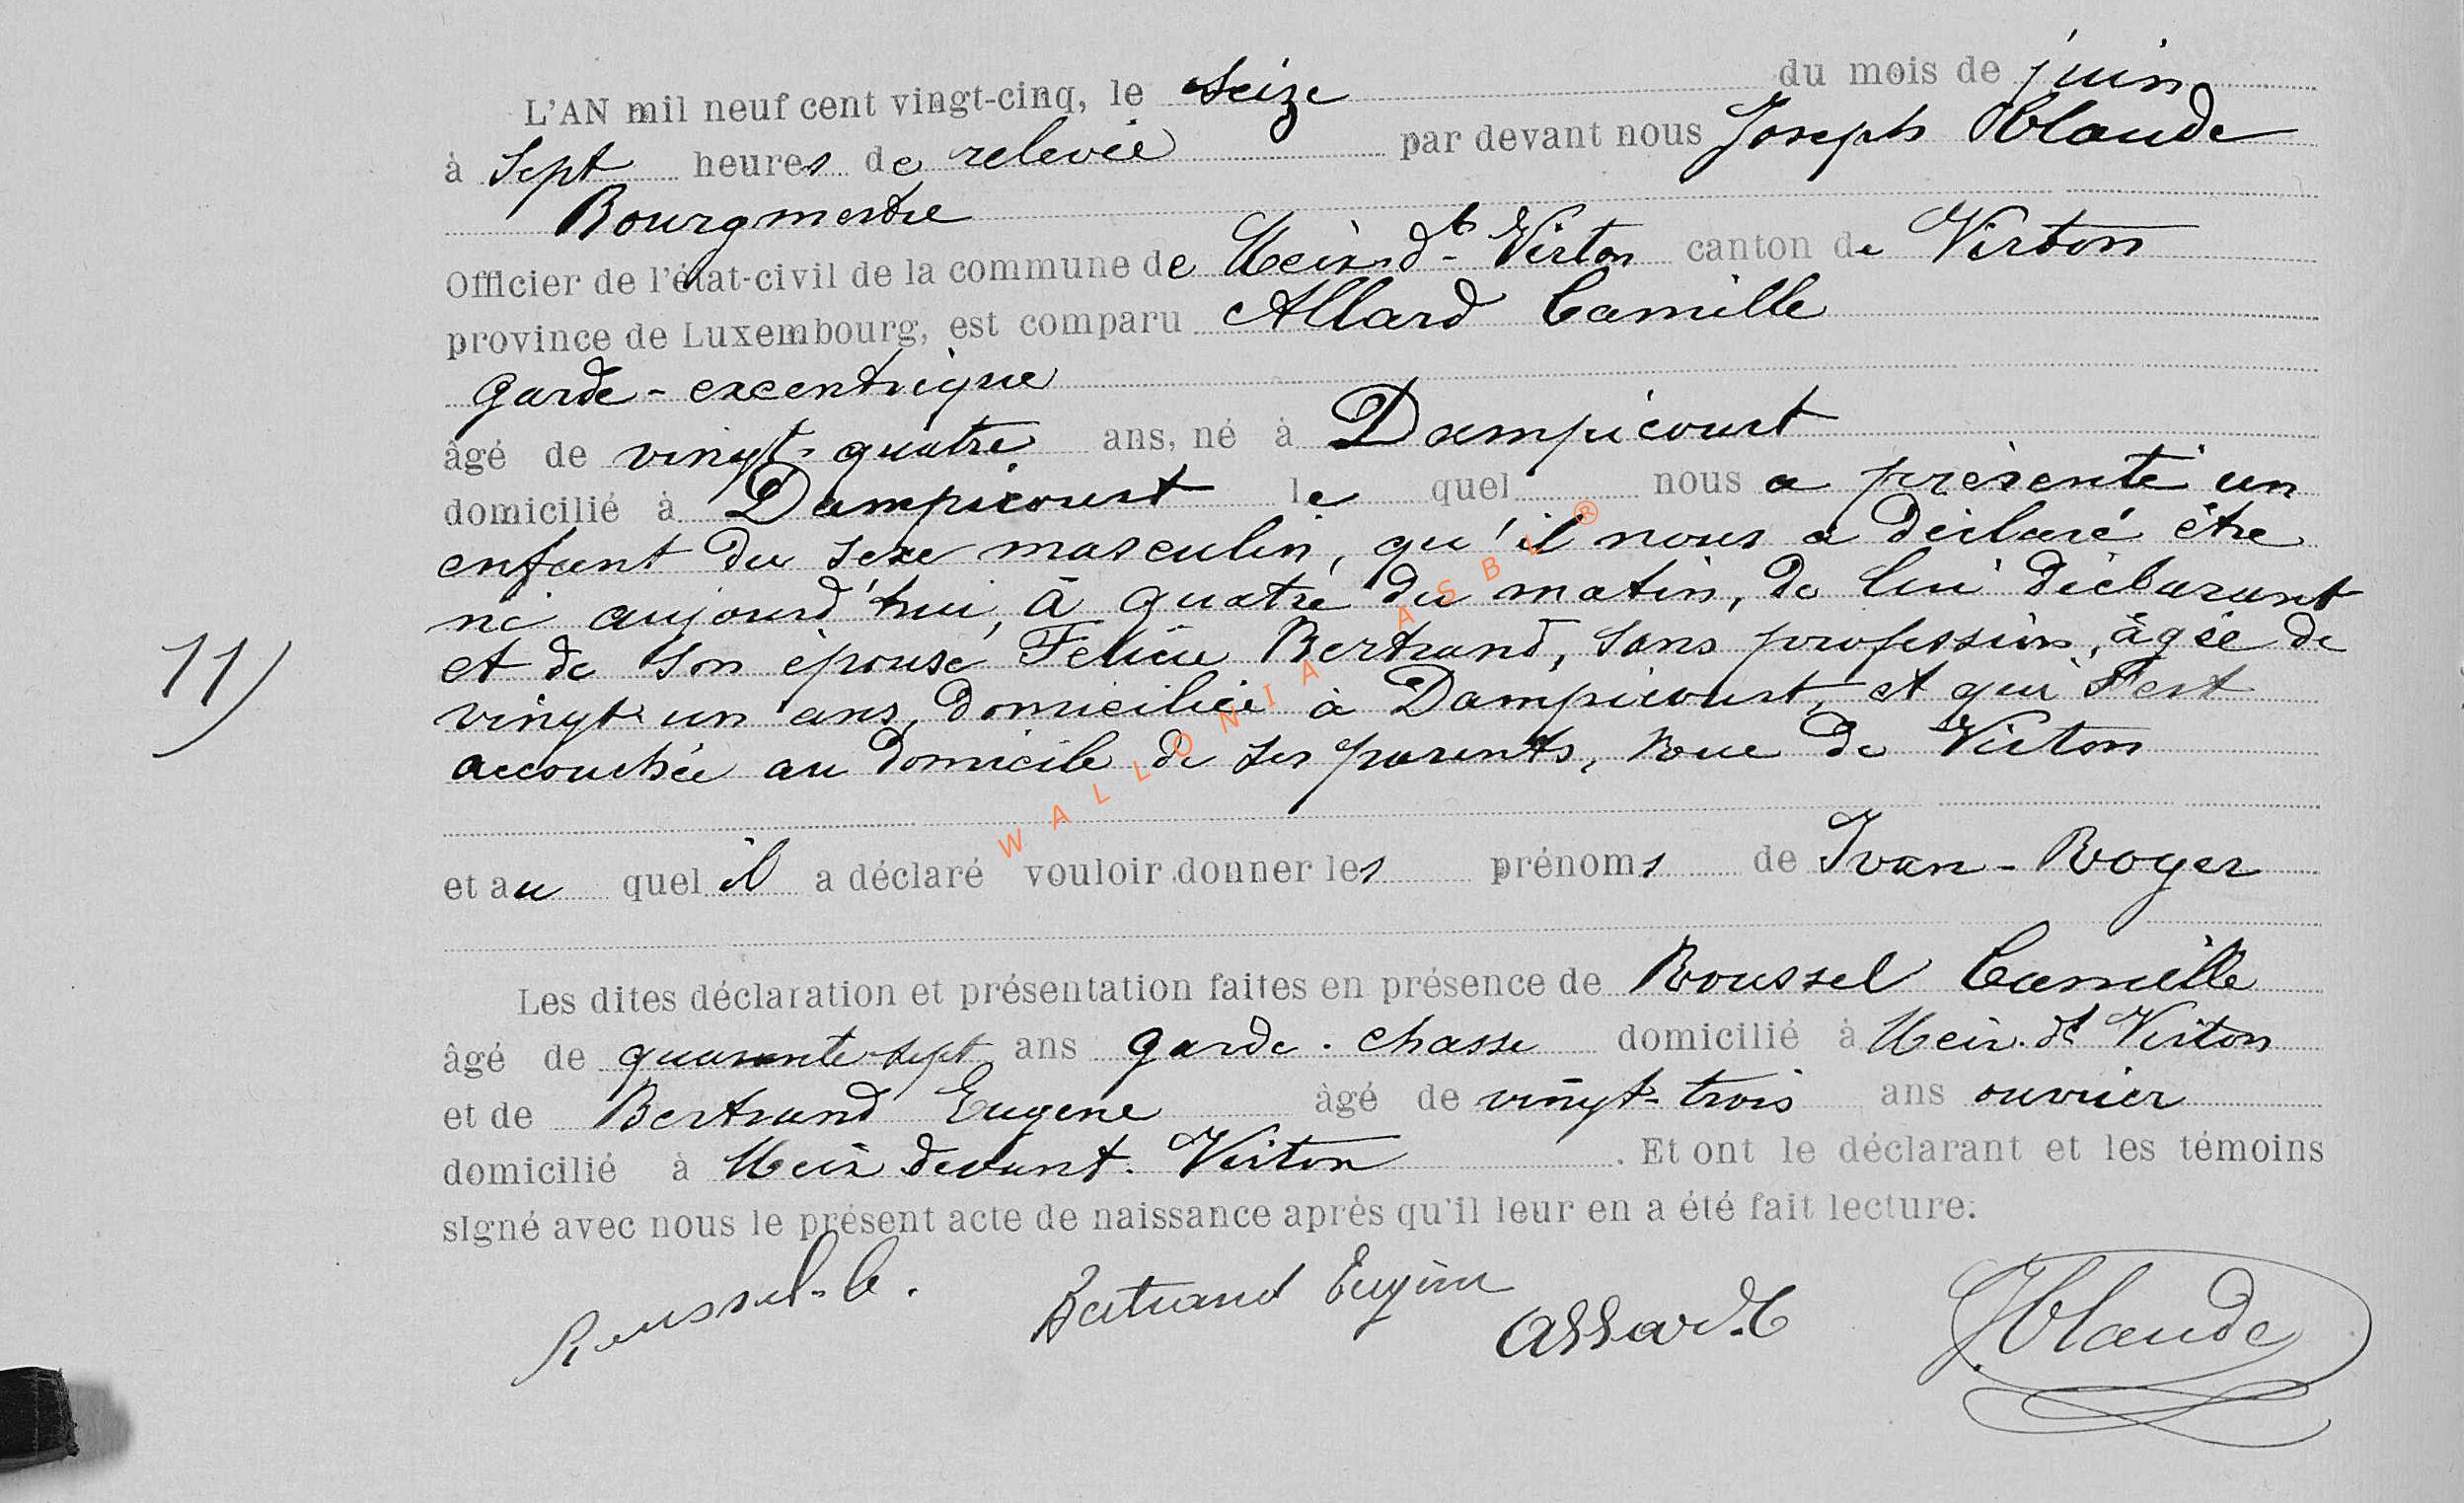 L'AN mil neuf cent vingt-cinq, le seize du mois de juin
à sept heures de relevée par devant nous Joseph Claude
Bourgmestre
Officier de l'état-civil de la commune de Meix-dt-Virton canton de Virton
province de Luxembourg, est comparu Allard Camille
garde-excentrique
âgé de vingt-quatre ans, né à Dampicourt
domicilié à Dampicourt le quel nous a présenté un
enfant du sexe masculin, qu'il nous a déclaré être
né aujourd'hui, à quatre du matin, de lui déclarant
11) et de son épouse Félicie Bertrand, sans profession, âgée de
vingt-un ans, domiciliée à Dampicourt, et qui s'est
accouchée au domicile de ses parents, rue de Virton
WALLONIA ASBL®
et au quel il a déclaré vouloir donner les prénoms de Ivan-Roger
Les dites déclaration et présentation faites en présence de Roussel Camille
âgé de quarante-sept ans garde-chasse domicilié à Meix-dt Virton
et de Bertrand Eugene âgé de vingt-trois ans ouvrier
domicilié à Meix devant-Virton. Et ont le déclarant et les témoins
signé avec nous le présent acte de naissance après qu'il leur en a été fait lecture.
Roussel-C. Bertrand Eugène Allard.C J Claude